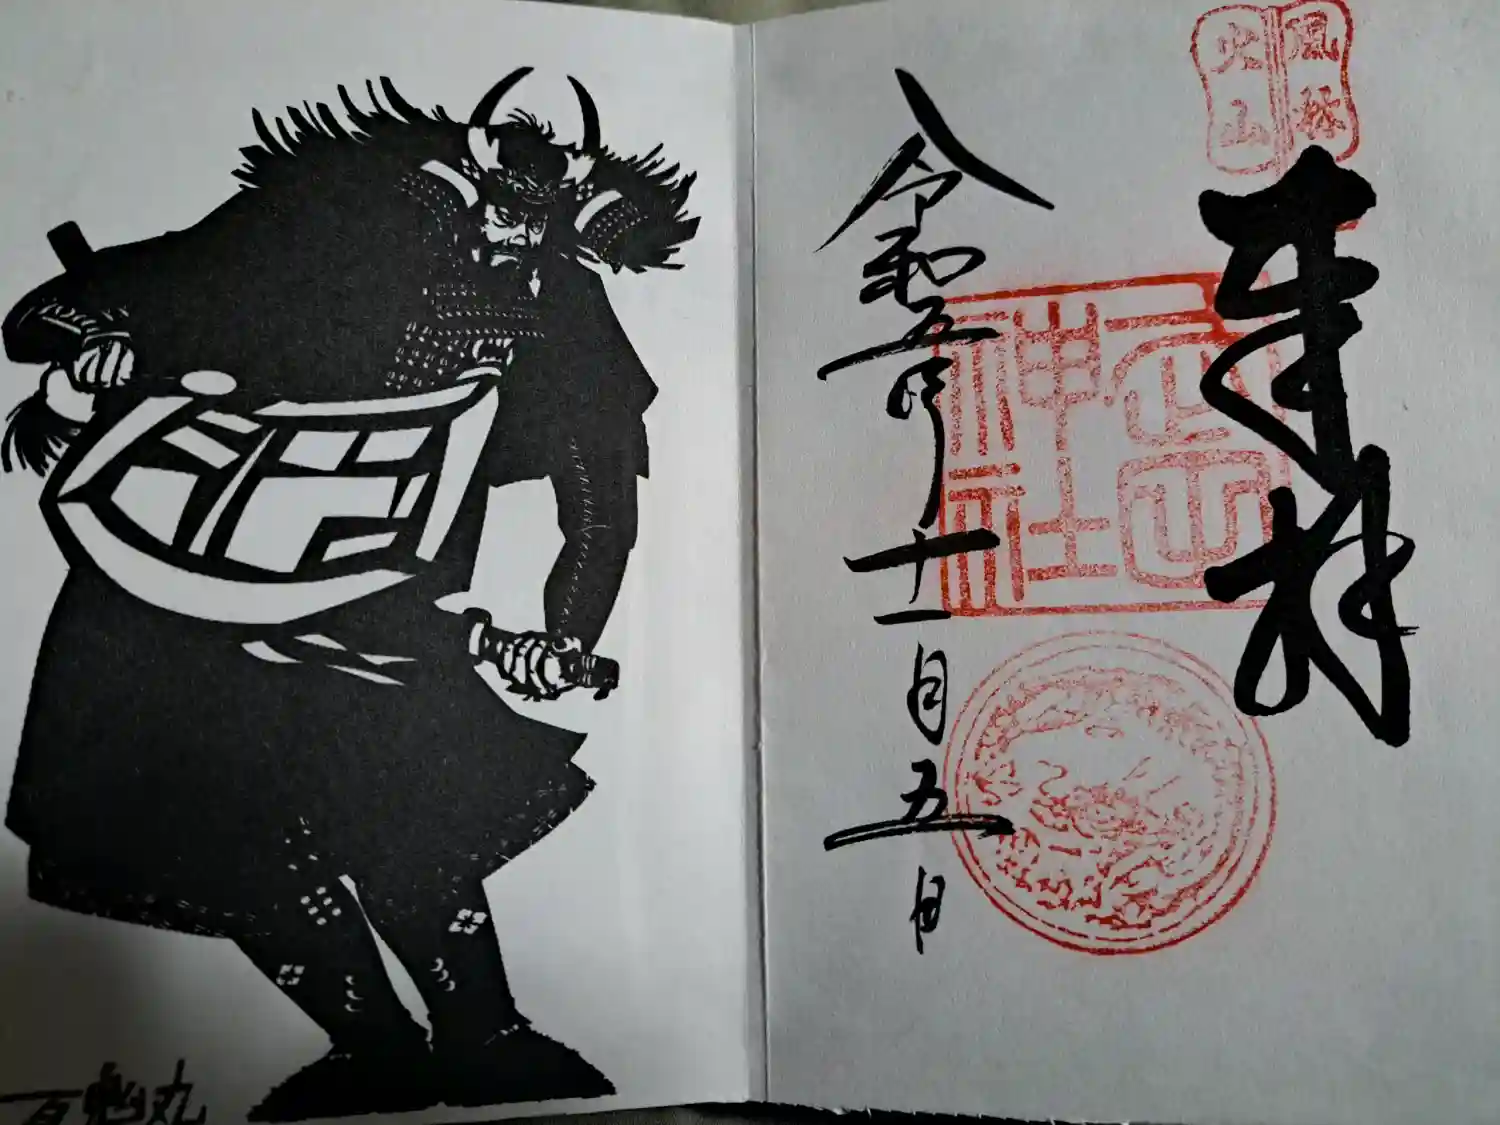 風林
火山
奉拝
神社
令和五年十一月五日
百鬼丸